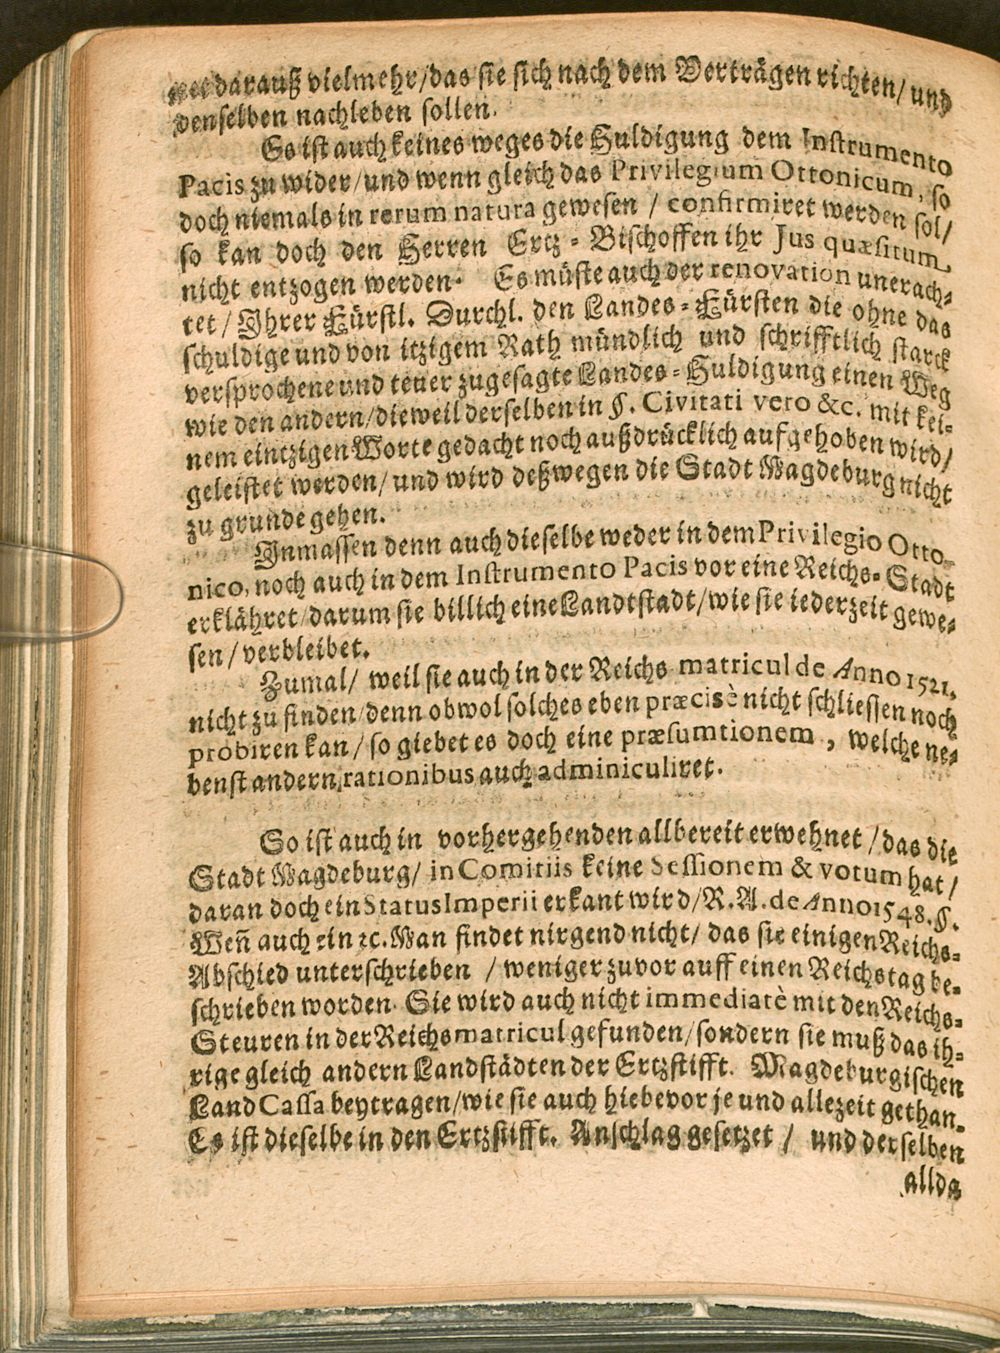 darauß vielmehr/das sie sich nach dem Verträgen richten/ und
denselben nachleben sollen.
Es ist auch keines weges die Huldigung dem Instrumento
Pacis zu wider/und wenn gleich das Privilegium Ottonicum, so
doch niemals in rerum natura gewesen / confirmiret werden sol/
so kan doch den Herren Ertz-Bischoffen ihr Jus quæsitum,
nicht entzogen werden. Es müste auch der renovation unerach-
tet/ Ihrer Fürstl. Durchl. den Landes-Fürsten die ohne das
schuldige und von itzigem Rath mündlich und schrifftlich starck
versprochene und teuer zugesagte Landes-Huldigung einen Weg
wie den andern/dieweil derselben in §. Civitati vero &c. mit kei-
nem eintzigen Worte gedacht noch außdrücklich aufgehoben wird/
geleistet werden/ und wird deßwegen die Stadt Magdeburg nicht
zu grunde gehen.
Inmassen denn auch dieselbe weder in dem Privilegio Otto-
nico, noch auch in dem Instrumento Pacis vor eine Reichs-Stadt
erklähret/darum sie billich eine Landtstadt/wie sie iederzeit gewe-
sen/verbleibet.
Zumal/ weil sie auch in der Reichs matricul de Anno 1521.
nicht zu finden/denn obwol solches eben præcisè nicht schliessen noch
probiren kan/so giebet es doch eine præsumtionem, welche ne-
benst andern rationibus auch adminiculiret.
So ist auch in vorhergehenden allbereit erwehnet/das die
Stadt Magdeburg/ in Comitiis keine Sessionem & votum hat/
daran doch ein Status Imperii erkant wird/R.A. de Anno 1548. §.
Weñ auch ein ꝛc. Man findet nirgend nicht/ das sie einigen Reichs-
Abschied unterschrieben / weniger zuvor auff einen Reichstag be-
schrieben worden. Sie wird auch nicht immediatè mit den Reichs-
Steuren in der Reichsmatricul gefunden/sondern sie muß das ih-
rige gleich andern Landstädten der Ertzstifft. Magdeburgischen
Land Cassa beytragen/wie sie auch hiebevor je und allezeit gethan.
Es ist dieselbe in den Ertzstifft. Anschlag gesetzet / und derselben
allda